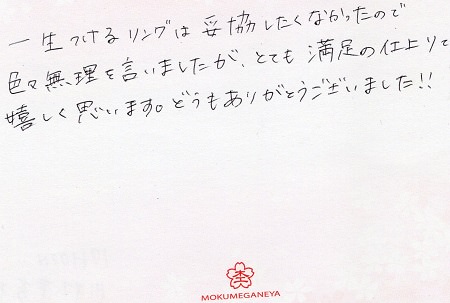 一生つけるリングは妥協したくなかったので
色々無理を言いましたが、とても満足の仕上りで
嬉しく思います。どうもありがとうございました!!
杢
MOKUMEGANEYA